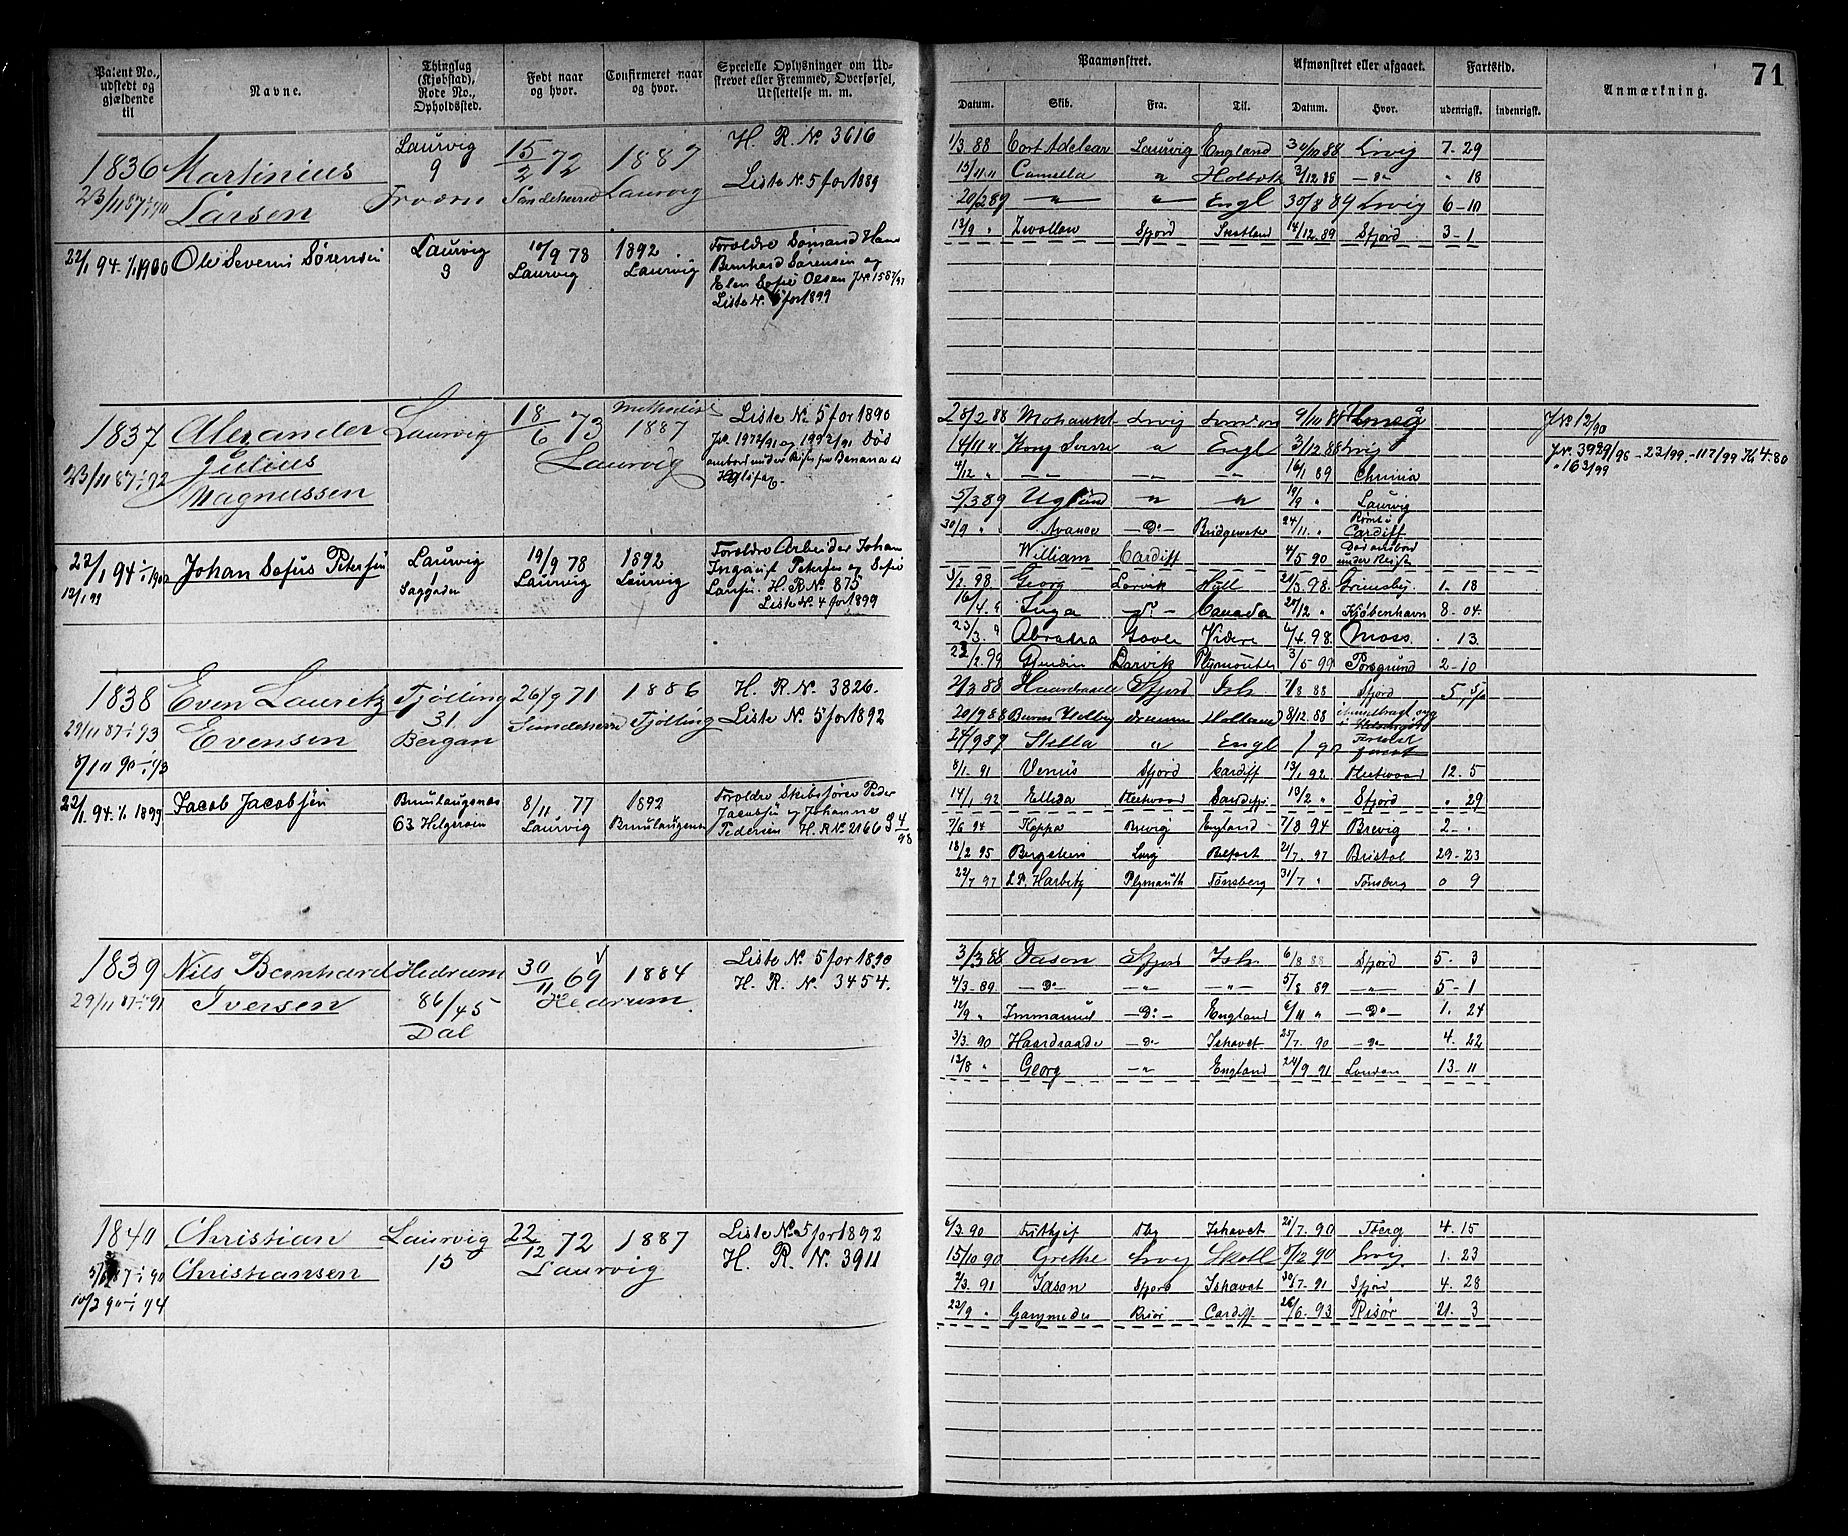 Patent No., udstedt og gjældende til
Navne.
Thinglag (Kjøbstad), Rode No., Opholdssted.
Født naar og hvor.
Confirmeret naar og hvor.
Specielle Oplysninger om Udstrevet eller Fremmed, Overførsel, Udslettelse m. m.
Paamønstret.
Afmønstret eller afgaaet.
Fartstid.
Anmærkning.
71
Datum.
Skib.
Fra.
Til.
Datum.
Hvor.
udenrigsk.
indenrigsk.
1836 Martinius Laurvig 15/2 72 1887 H. R. No. 3616
23/11 87 Larsen 9 Sandeherred Laurvig Liste No. 5 for 1889
22/1 94 1/1 1900 Ole Severin Sørensen Laurvig 3 10/9 78 Laurvig 1892 Laurvig Forældre Sømand Hans
Bernhard Sørensen og
Elen Sofie Olsen J.No. 1587/91
Liste No. 5 for 1899
1837 Alexander Laurvig 18/6 73 1887 Liste No. 5 for 1890
23/11 87 92 Julius Laurvig
Magnussen
ombord under Rejse fra Banana
22/1 94 Johan Sofus Petersen Laurvig 19/9 78 1892 Forældre Arbeider Johan
12/1 99 1 Laurvig Laurvig Petersen og Sofie
H. R. No. 875
Liste No. 4 for 1899
1838 Even Lauritz Tjølling 26/9 71 1886 H. R. No. 3826.
29/11 87 93 Evensen 31 Sandeherred Tjølling Liste No. 5 for 1892
Bergan
22/1 94 1/1 1899 Jacob Jacobsen Brunlaugsnæs 8/11 77 1892 Forældre Skibsfører Peder
63 Helgeroen Laurvig Jacobsen og Johanne
Pedersen H. R. No. 2166 S 4/98
1839 Nils Bernhard Hedrum 30/11 69 1884 Liste No. 5 for 1890
29/11 87 91 Iversen 86/45 Hedrum H. R. No. 3454.
Dal
1840 Christian Laurvig 22/12 72 1887 Liste No. 5 for 1892
Christiansen 15 Laurvig H. R. No. 3911
10/2 90 94
1/3 88 Cort Adelaar Laurvig England 30/10 88 Lrvig 7 - 29
15/11 " Camella " Holbæk 3/12 88 - D° - " 18
20/2 89 - " - " Engl 30/8 89 Lrvig 6 - 10
13/9 " Sfjord 14/12 89 Sfjord 3 - 1
28/2 88 Lrvig London J.No. 12/90
14/11 " Kong Sverre " Engl 3/12 88 Lrvig J.No. 3929/96 - 23/99 - 117/99 Kr 4.80
4/12 " - - - 16/1 89 Chrinia " 163/99
5/3 89 Ugland " " 19/9 " Laurvig
30/9 " Avance - D° - Bridgewater 24/11 " Cardiff
William Cardiff 4/5 90 Død ombord under Reise
3/1 98 Georg Larvik Hull 21/3 98 Grimsby 1 - 18
16/4 " Inga - D° - Canada 27/12 " Kjøbenhavn 8 - 04
23/3 " Gavle 6/4 98 Moss. " 13
22/2 99 Larvik Plymouth 3/5 99 Porsgrund 2 - 10
2/3 88 Haardraade Sfjord Ish. 7/8 88 Sfjord
20/9 88 Holland 8/12 88
24/9 89 Stella " Engl
8/1 91 Venus Sfjord Cardiff 13/1 92 Fleetwood 12 - 5
14/1 92 Ellida Fleetwood 13/2 " Sfjord " 29
7/6 94 Brevig England 7/8 94 Brevig 2 -
18/2 95 Bergslien Belfast 21/7 97 Bristol 29 - 23
22/7 97 Plymouth Tønsberg 31/7 " Tønsberg 0 9
3/3 88 Jason Sfjord Ish. 6/8 88 Sfjord 5 - 3
4/3 89 - D° - - " - - " - 5/8 89 - " - 5 - 1
12/9 " Immanuel - D° - England 6/11 " - D° - 1 - 24
3/3 90 Haardraade - D° - Ishavet 25/7 90 - D° - 4 - 22
12/8 " Georg - " - England 24/9 91 London 13 - 11
6/3 90 Frithjof Ishavet 21/7 90 Tberg 4 - 15
15/10 90 Grethe Lrvig Skotl 5/12 90 Lrvig 1 - 23
2/3 91 Jason Sfjord Ishavet 30/7 91 Sfjord 4 - 28
23/9 " Ganymedes Risør Cardiff 26/6 93 Risør 21 - 3